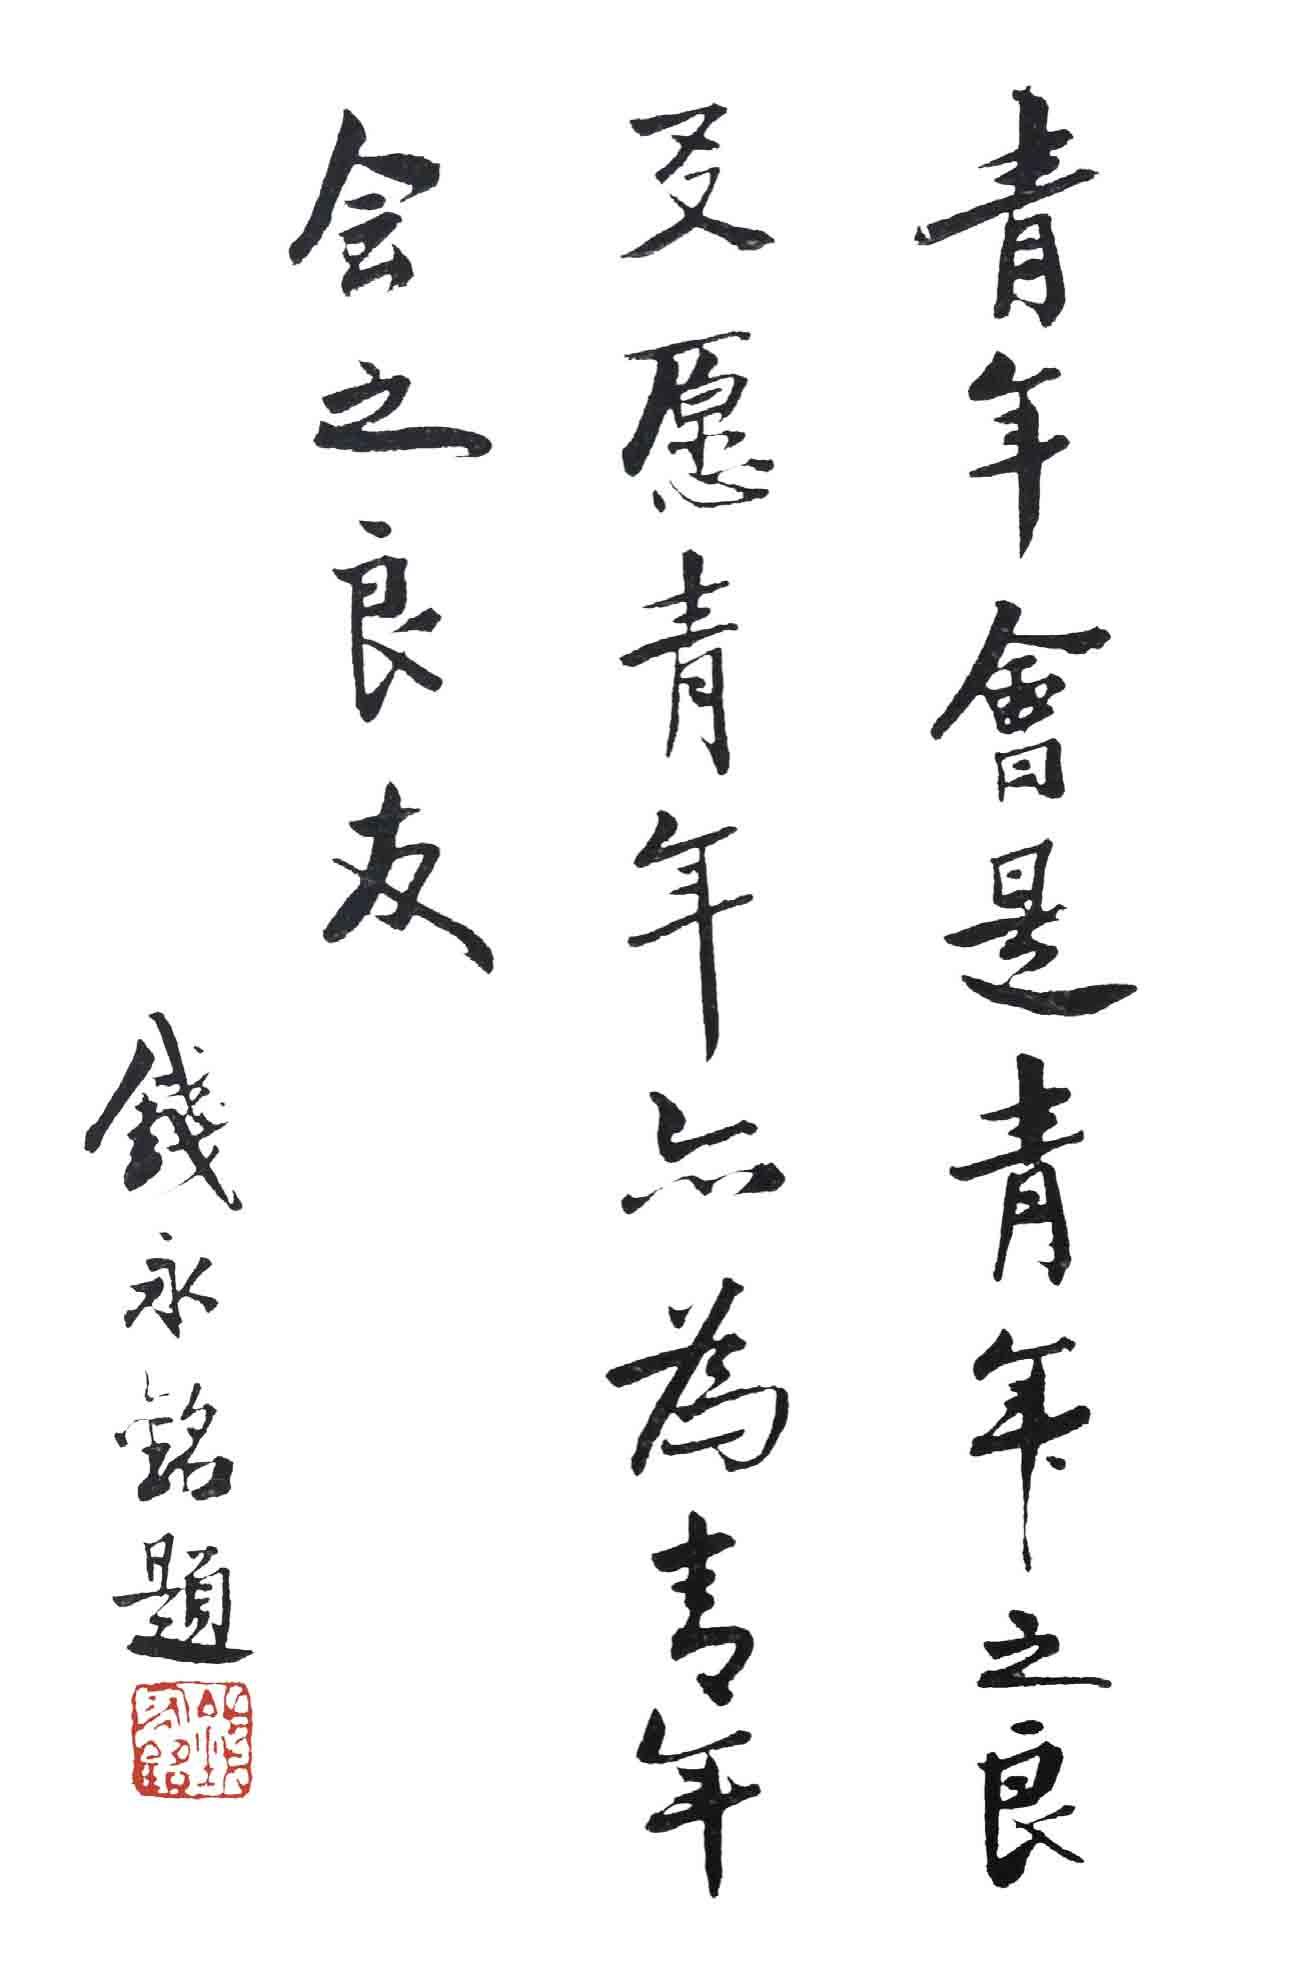 青年會是青年之良
友愿青年亦為青年
会之良友
錢永銘題